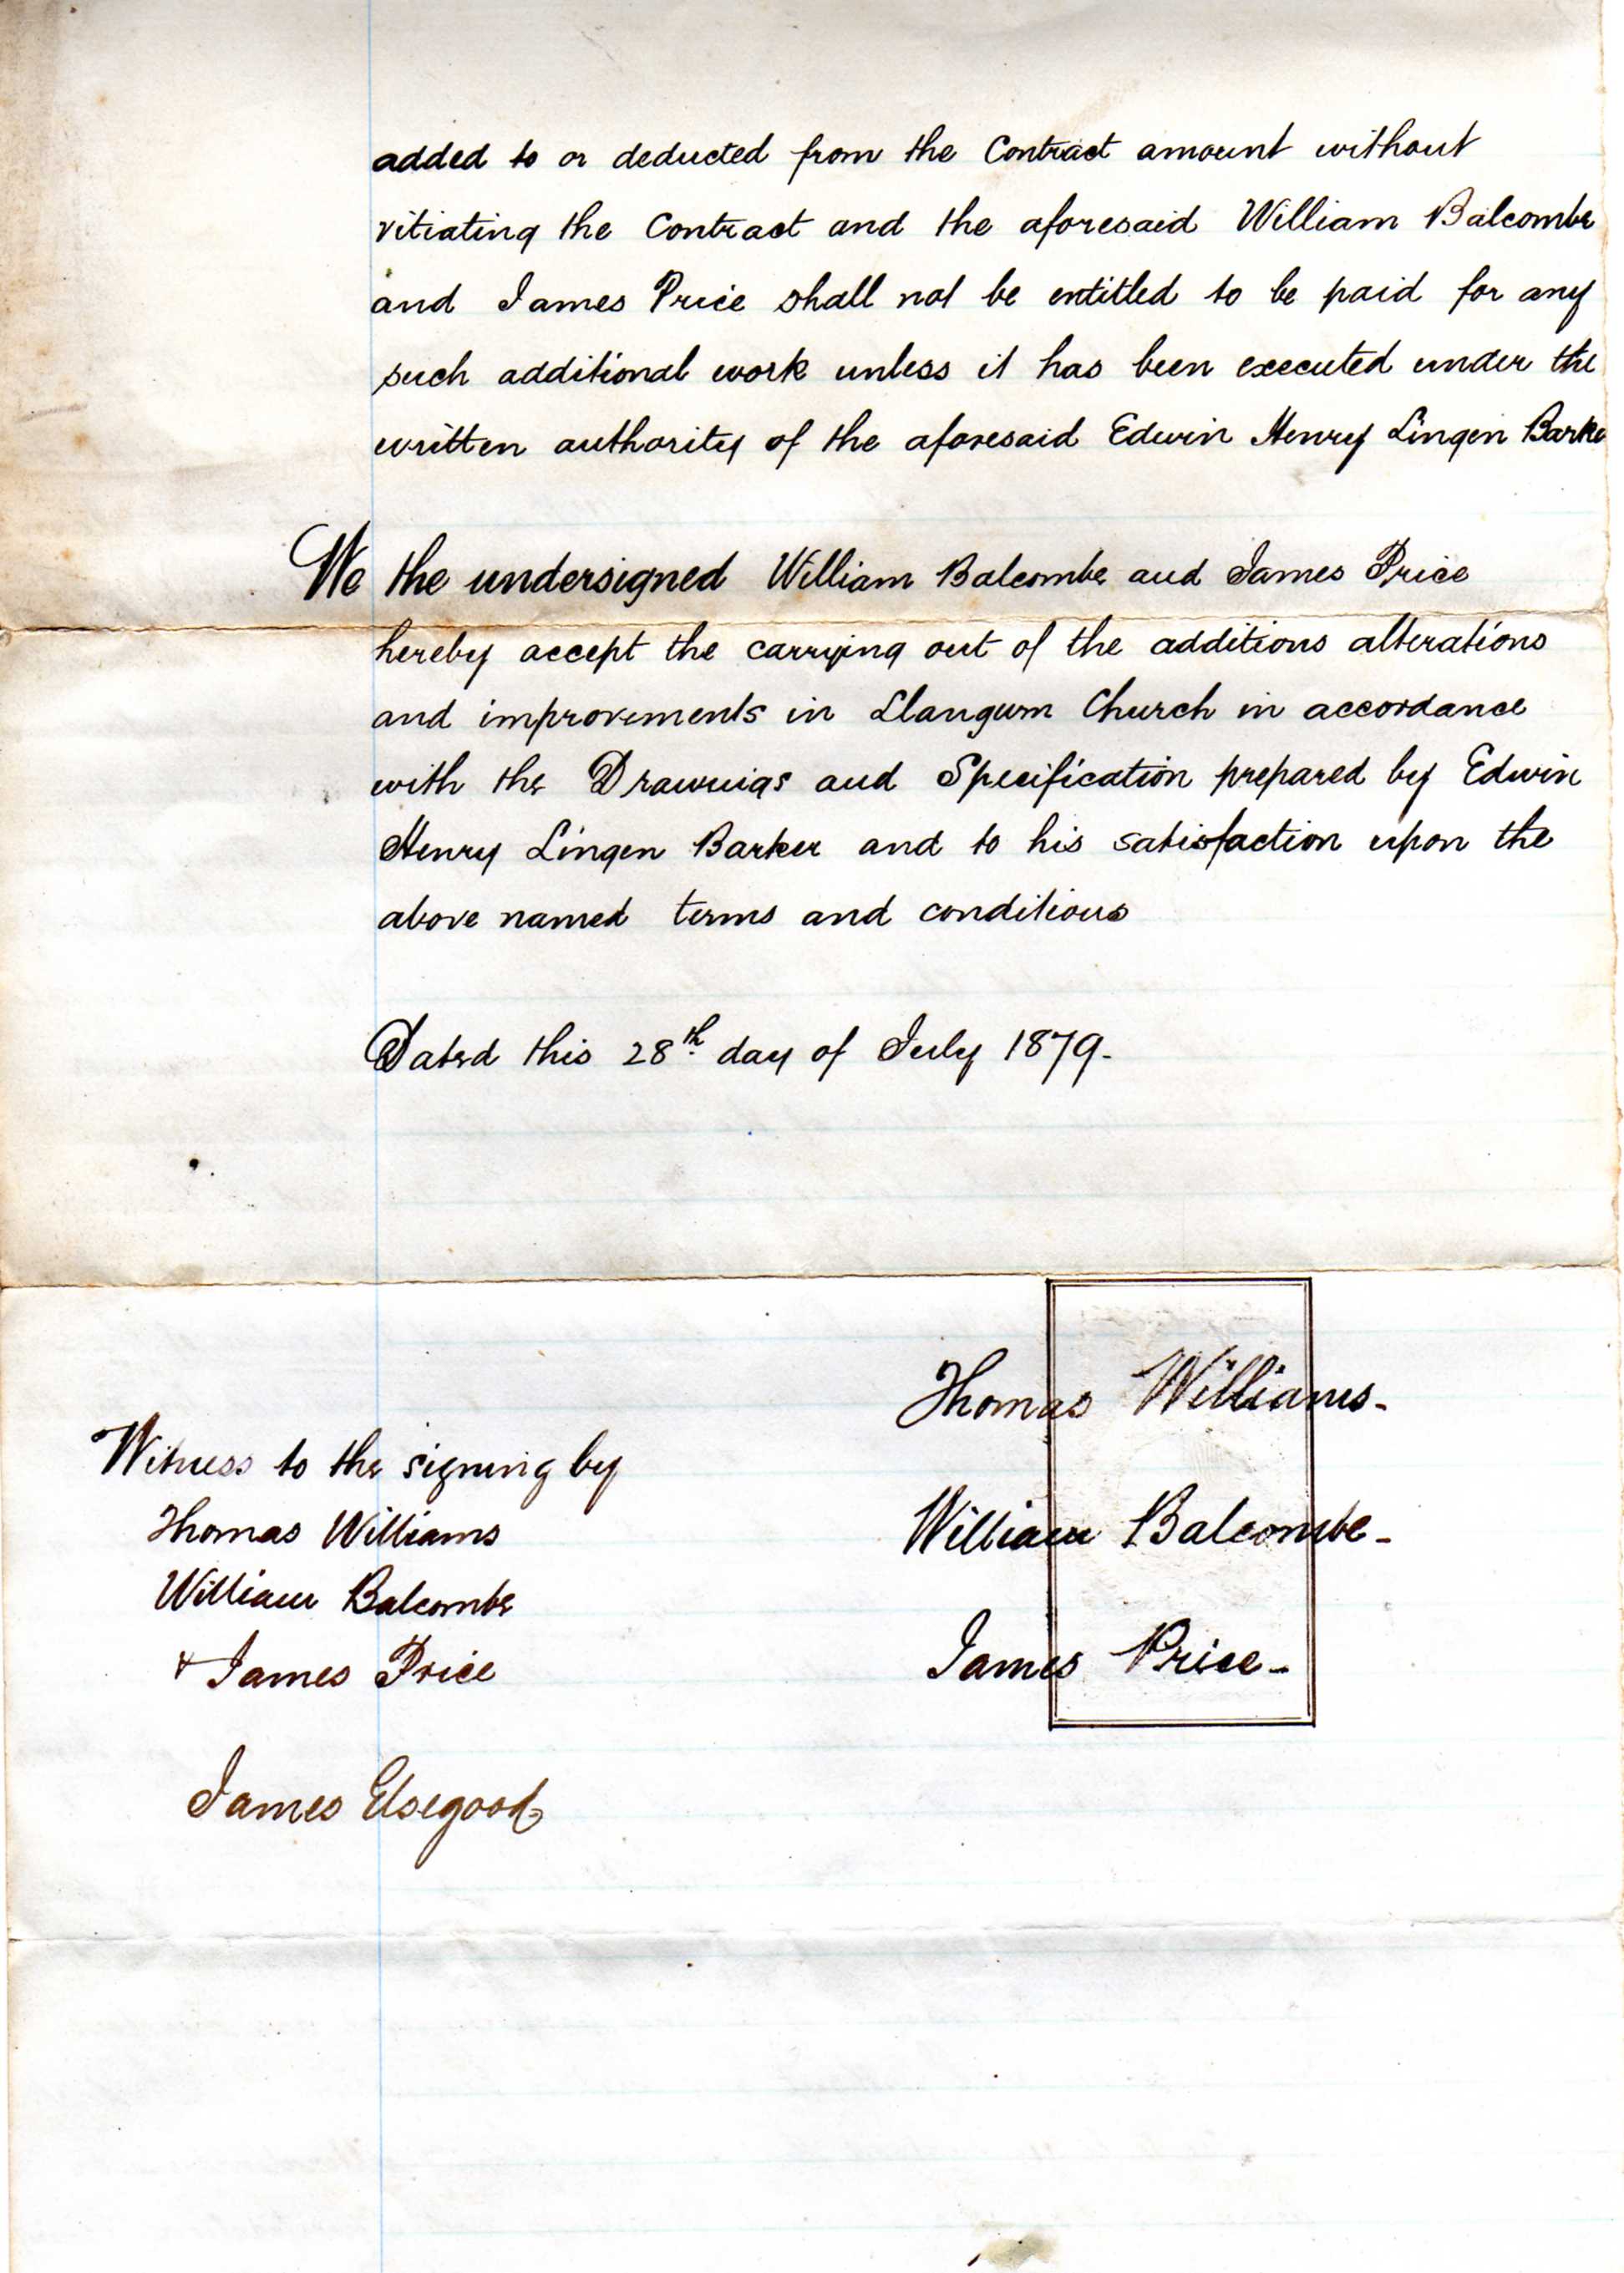 added to or deducted from the Contract amount without
vitiating the Contract and the aforesaid William Balcombe
and James Price shall not be entitled to be paid for any
such additional work unless it has been executed under the
written authority of the aforesaid Edwin Henry Lingen Barke
We the undersigned William Balcombe and James Price
hereby accept the carrying out of the additions alterations
and improvements in Llangwm Church in accordance
with the Drawings and Specification prepared by Edwin
Henry Lingen Barker and to his satisfaction upon the
above named terms and conditions
Dated this 28th day of July 1879.
Thomas Williams.
Witness to the signing by
Thomas Williams
William Balcombe
William Balcombe
& James Price
James Price
James Elsegood